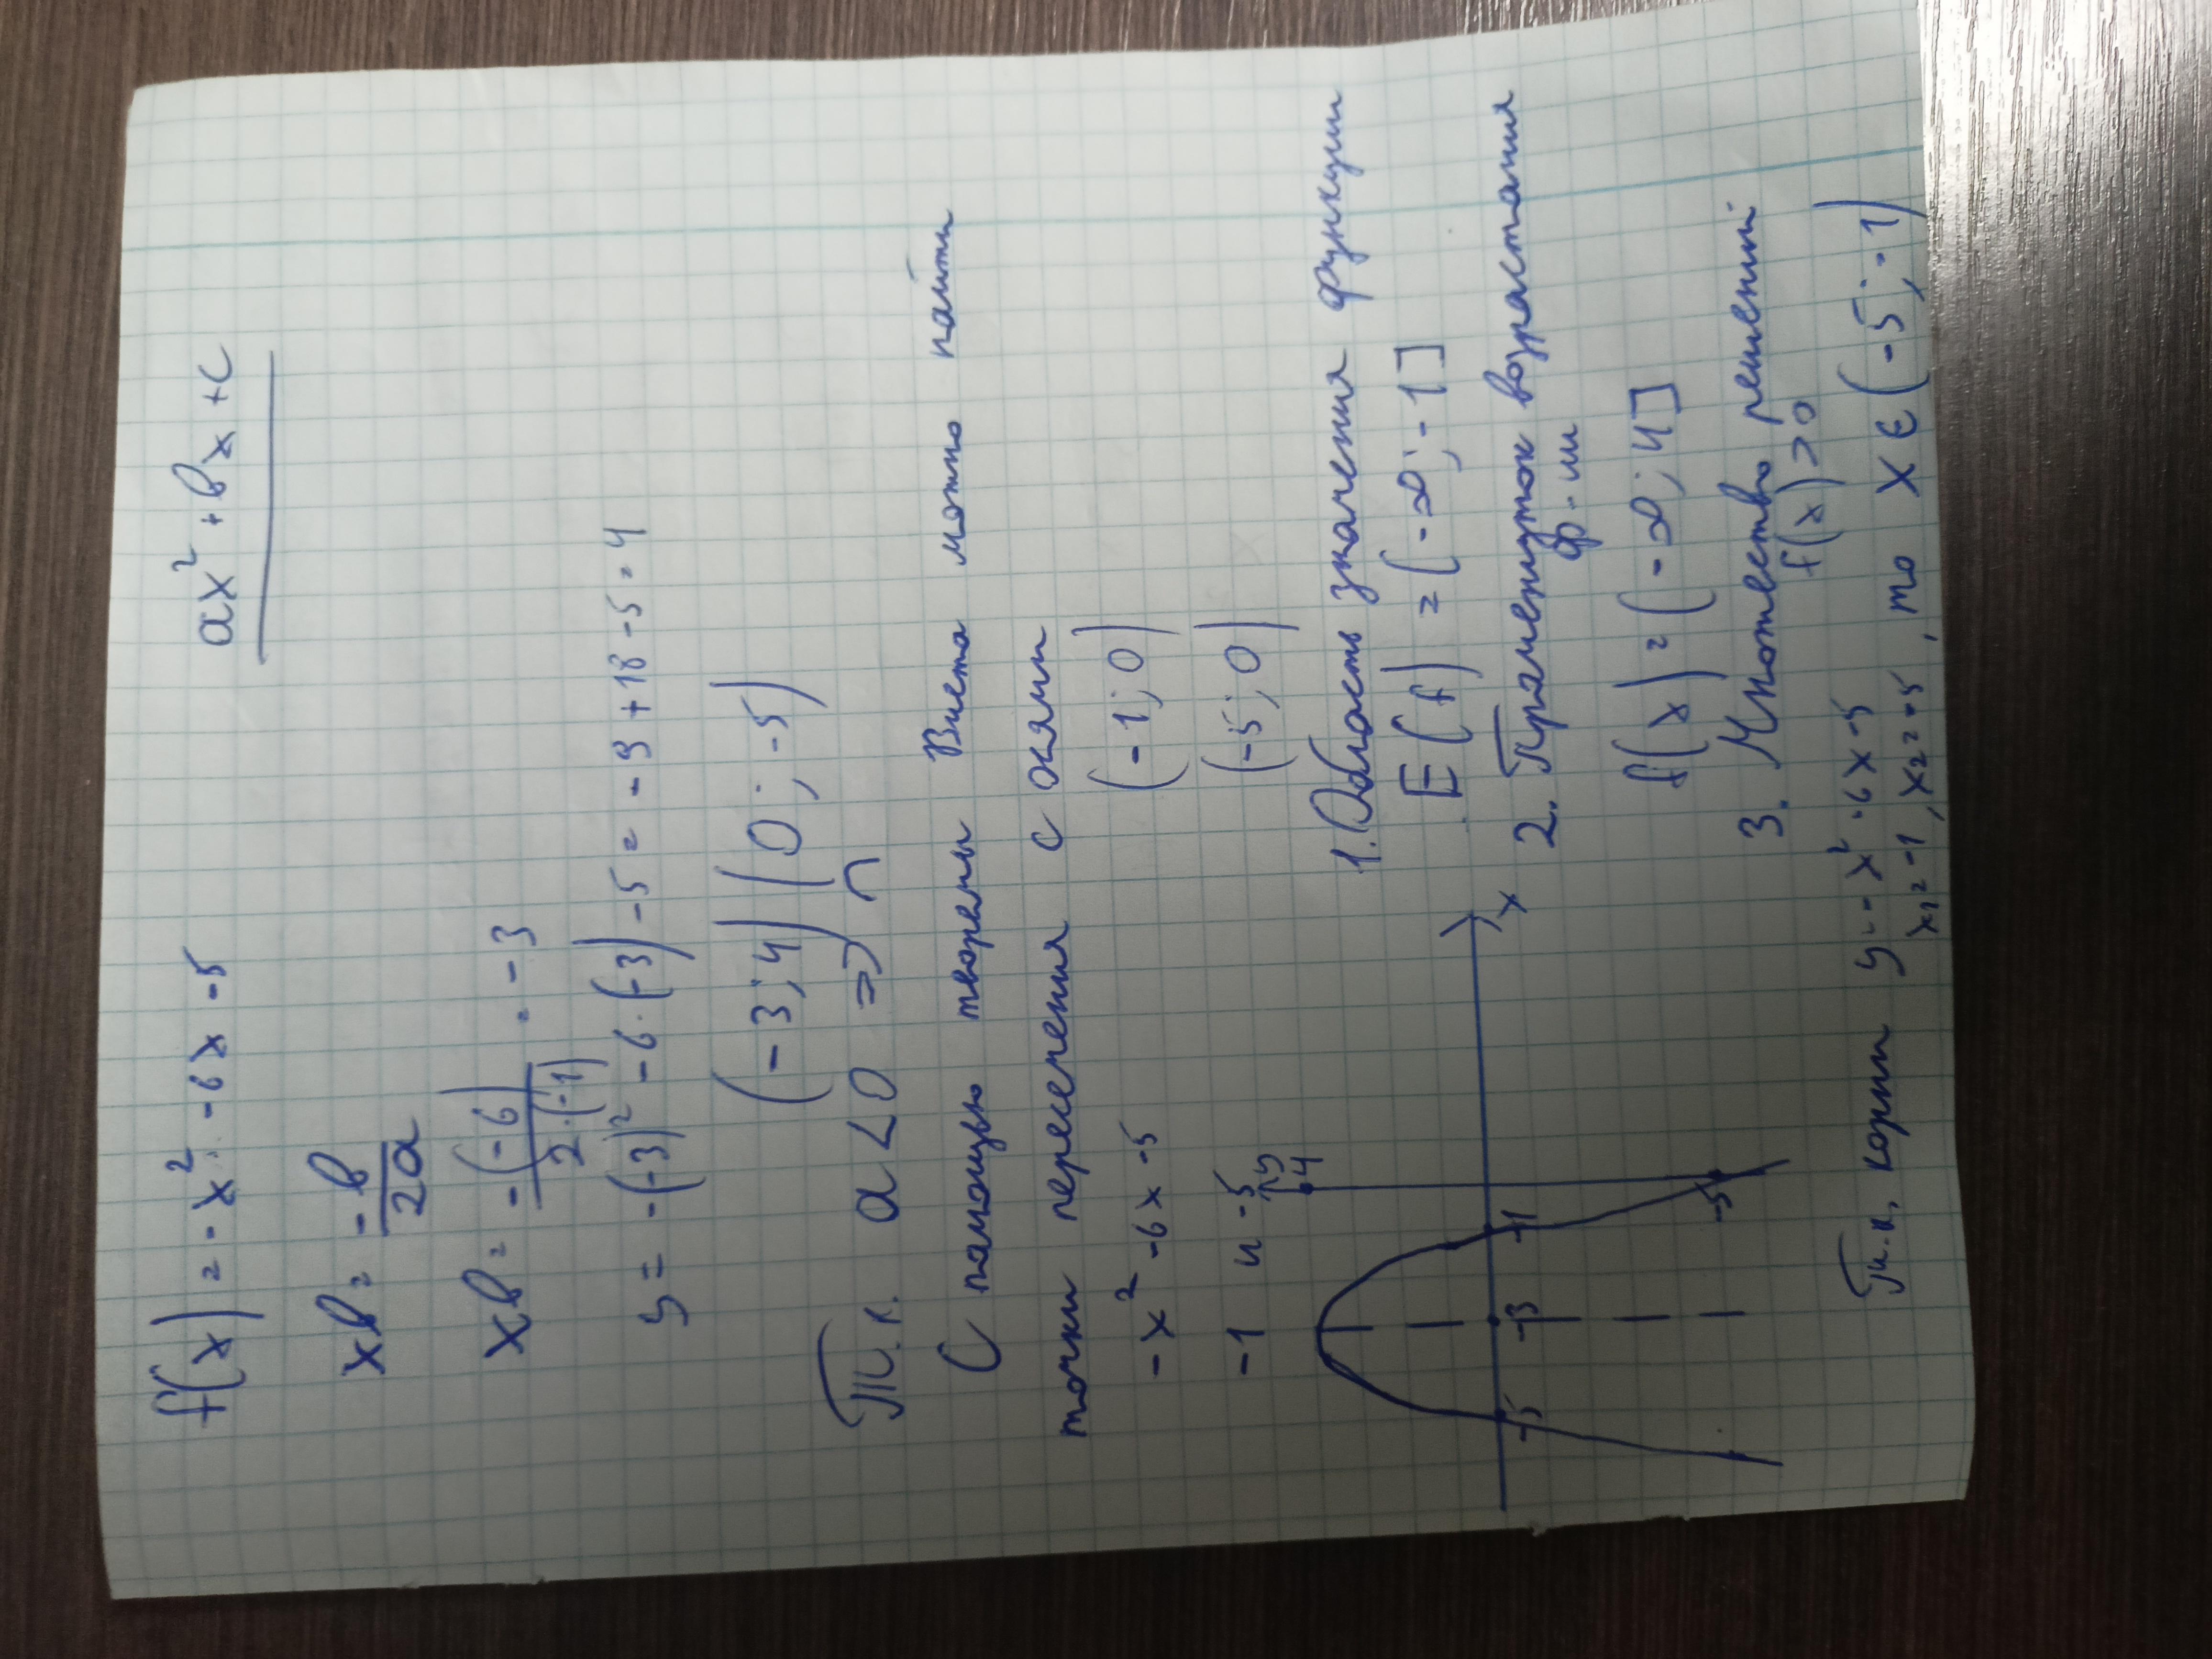 ax² + bx + c
f(x) = -x² - 6x - 5
xв = -в/2a
xв = -(-6)/2·(-1) = -3
y = -(-3)² - 6·(-3) - 5 = -9 + 18 - 5 = 4
(-3; 4) (0; -5)
Т.к. a < 0 => ∩
С помощью теоремы Виета можно найти
точки пересечения с осями
-x² - 6x - 5
(-1; 0)
-1 и -5
(-5; 0)
y
4
-5
-3
-1
-5
x
1. Область значения функции
E(f) = (-∞; -1]
2. Промежуток возрастания
ф-ии
f(x) = (-∞; 4]
3. Множество решений
f(x) > 0
Т.к. корни y = -x² - 6x - 5
x₁ = -1, x₂ = -5, то x ∈ (-5; -1)